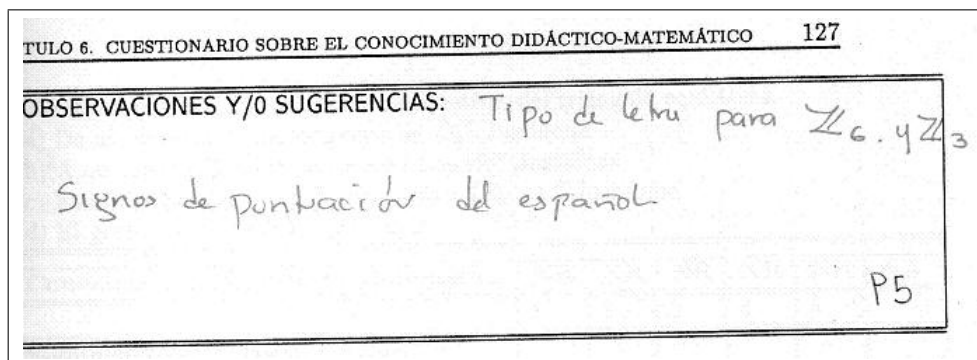 TULO 6. CUESTIONARIO SOBRE EL CONOCIMIENTO DIDÁCTICO-MATEMÁTICO 127
OBSERVACIONES Y/0 SUGERENCIAS: Tipo de letra para ℤ₆. y ℤ₃
Signos de puntuación del español
P5